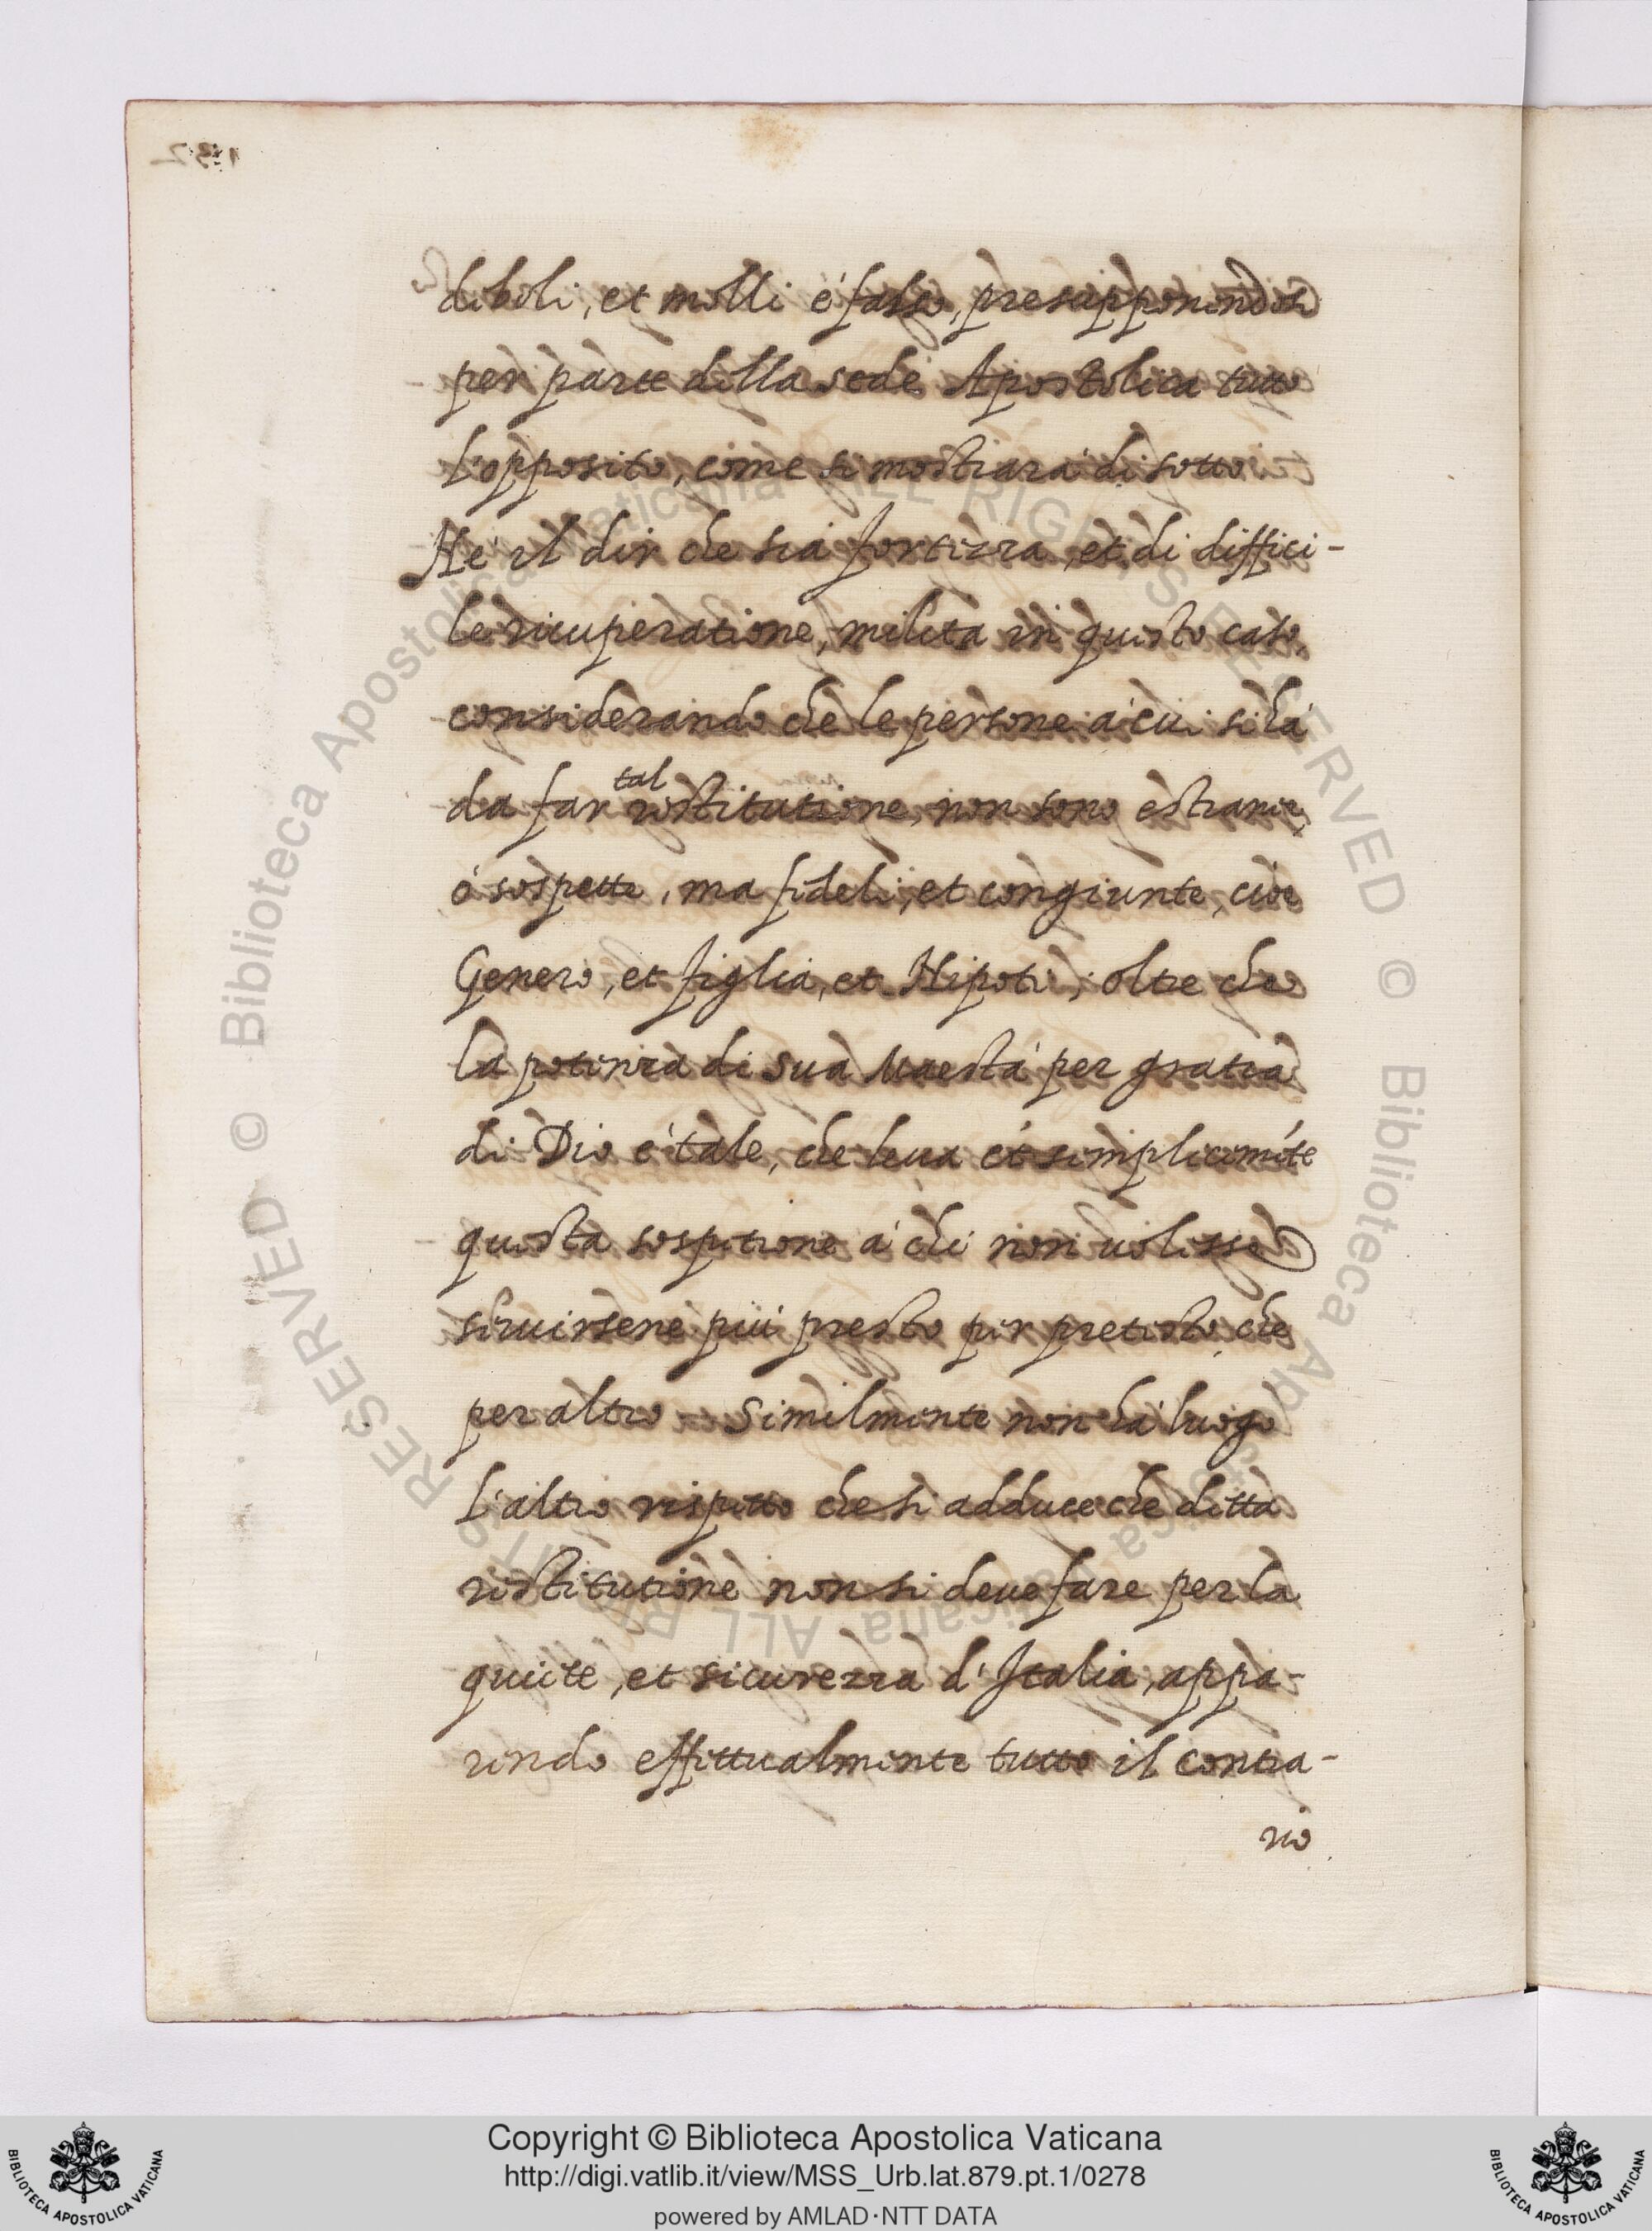 deboli, et molli é falso, presupponendosi
per parte della sede Apostolica tutto
l'opposito, come si mostrara di sotto
Né il dir che sia fortezza, et di diffici-
le ricuperatione, milita in questo caso,
considerando che le persone á cui si há
da far tal restitutione, non sono estranie,
ó sospette, ma fideli, et congiunte, cioe
Genero, et figlia, et Nipoti; oltre che
la potenza di Sua Maestá per gratia
di Dio é tale, che leua et semplicemẽte
questa sospetione á chi non uolesse
seruirsene piú presto per pretesto che
per altro. Similmente non há luogo
l'altro rispetto che si adduce che detta
restitutione non si deue fare per la
quiete, et sicurezza d'Italia, appa-
rendo effettualmente tutto il contra-
rio
Copyright © Biblioteca Apostolica Vaticana
http://digi.vatlib.it/view/MSS_Urb.lat.879.pt.1/0278
powered by AMLAD·NTT DATA
BIBLIOTECA APOSTOLICA VATICANA
BIBLIOTECA APOSTOLICA VATICANA